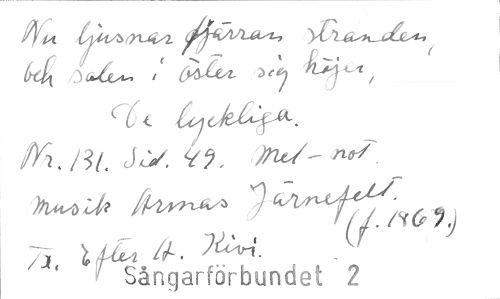 Nu ljusnar fjärran stranden,
och solen i öster sig höjer,
De lyckliga.
Nr. 131. Sid. 49. Mel-not.
Musik Armas Järnefelt.
(f. 1869.)
Tx. Efter A. Kivi.
Sångarförbundet 2